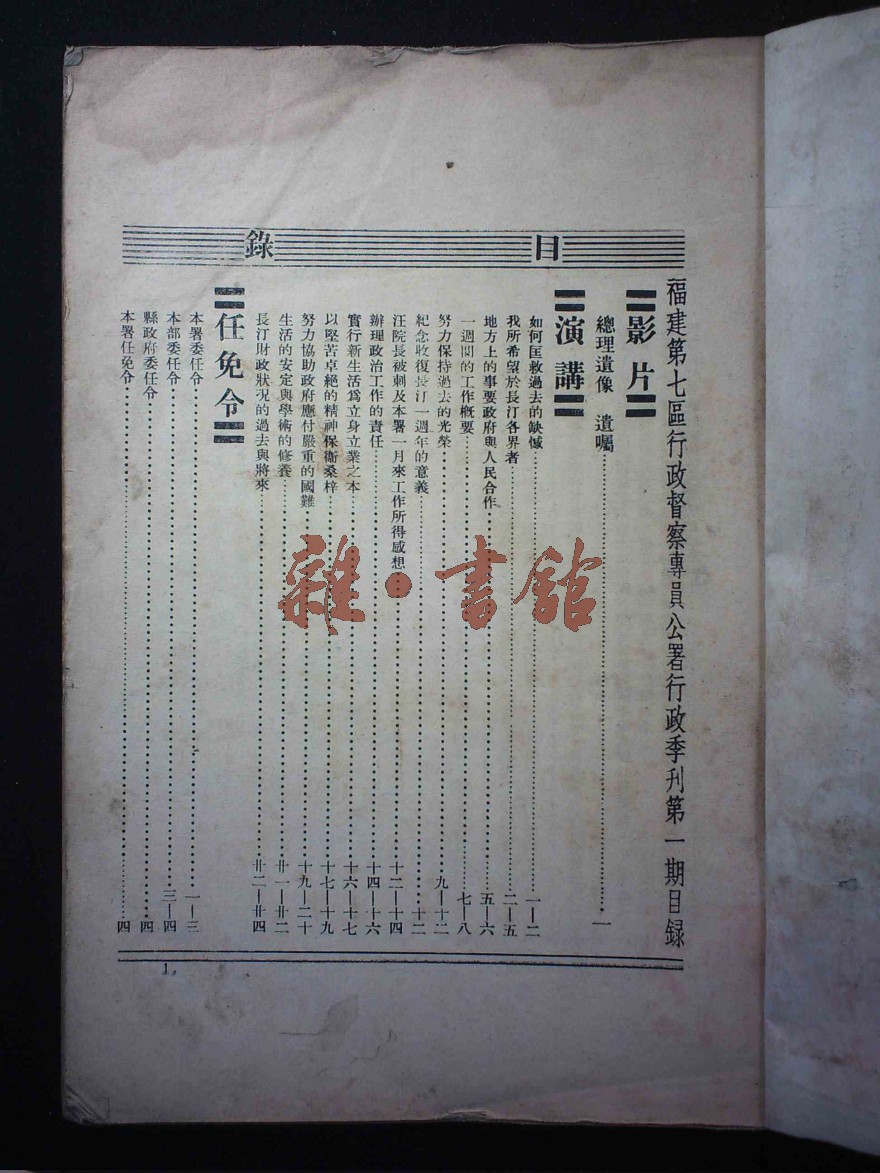 福建第七區行政督察專員公署行政季刊第一期目録
目錄
影片
總理遺像 遺囑……一
演講
如何匡救過去的缺憾……一—二
我所希望於長汀各界者……二—五
地方上的事要政府與人民合作……五—六
一週間的工作概要……七—八
努力保持過去的光榮……九—十二
紀念收復長汀一週年的意義……十二
汪院長被刺及本署一月來工作所得感想……十二—十四
辦理政治工作的責任……十四—十六
實行新生活爲立身立業之本……十六—十七
以堅苦卓絕的精神保衛桑梓……十七—十九
努力協助政府應付嚴重的國難……十九—二十
生活的安定與學術的修養……廿一—廿二
長汀財政狀況的過去與將來……廿二—廿四
任免令
本署委任令……一—三
本部委任令……三—四
縣政府委任令……四
本署任免令……四
1.
雜·書館